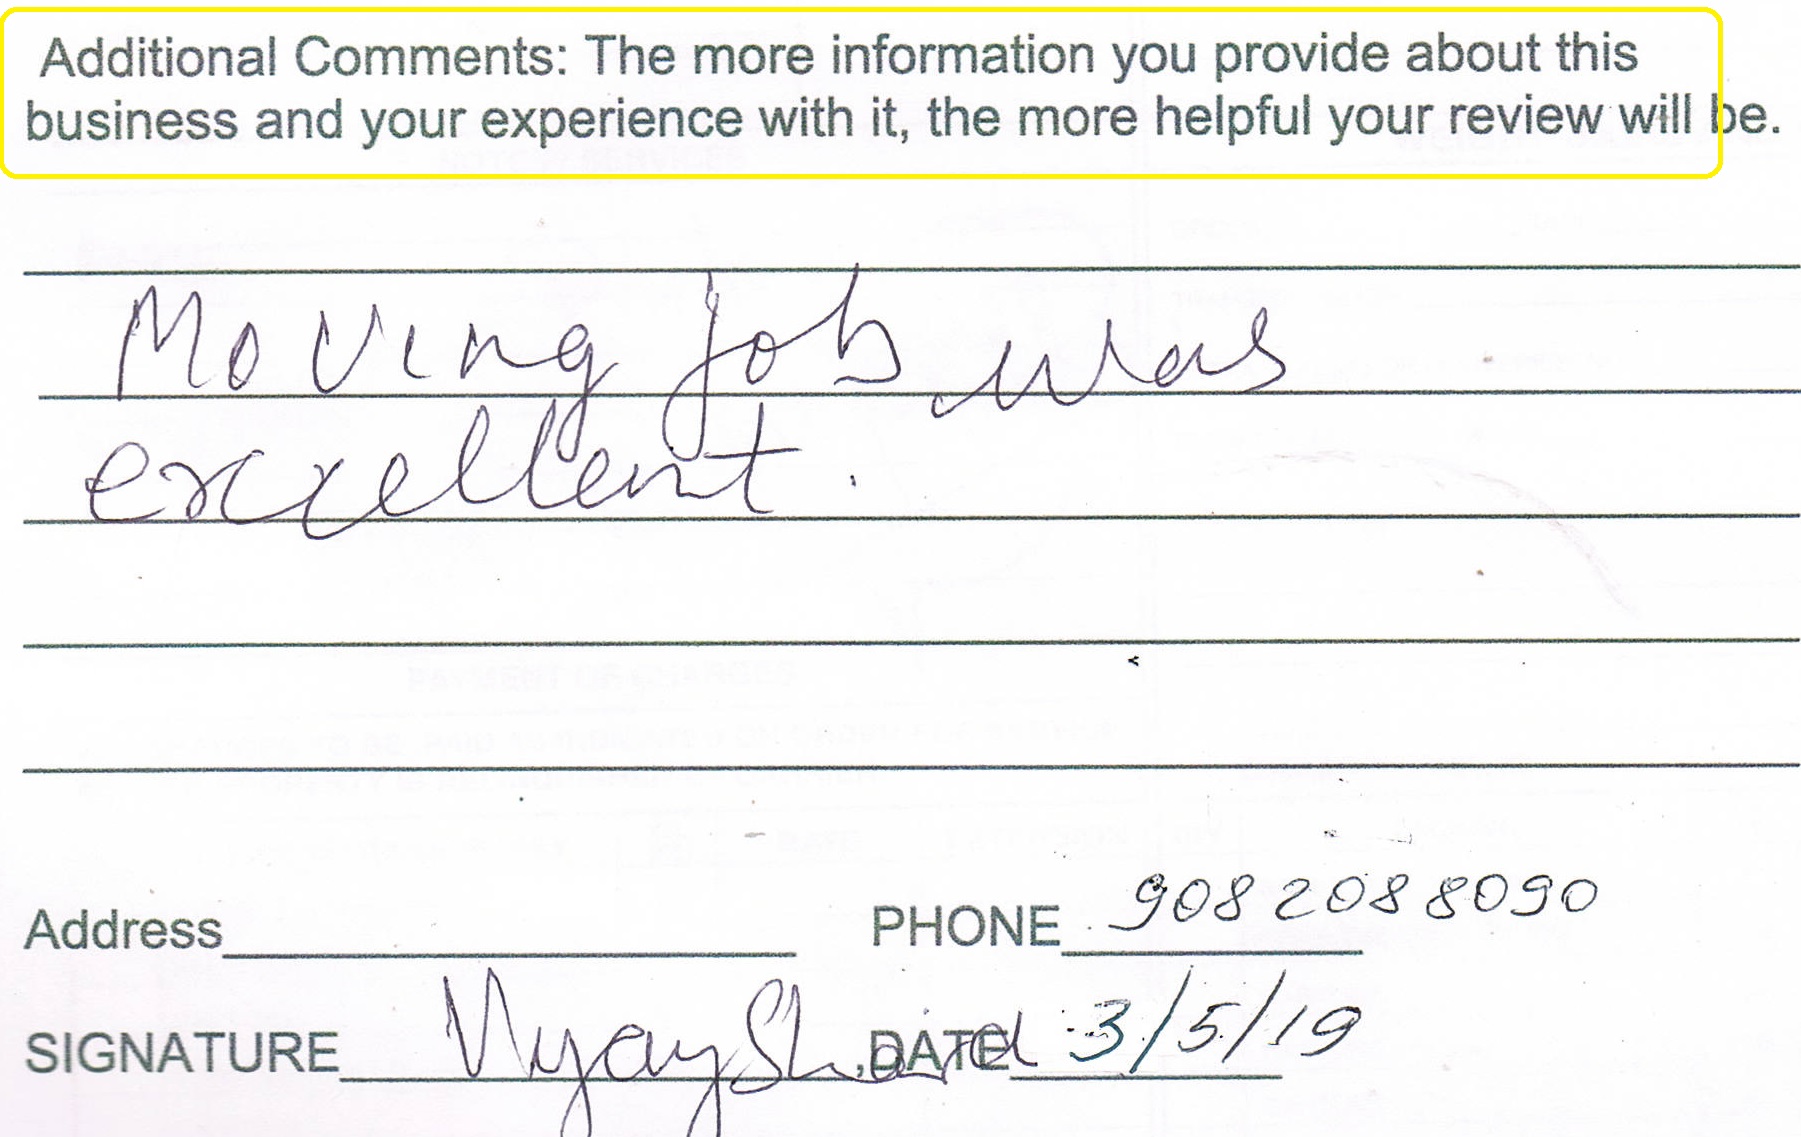 Additional Comments: The more information you provide about this
business and your experience with it, the more helpful your review will be.
Moving job was
excellent.
Address PHONE 9082088090
SIGNATURE DATE 3/5/19